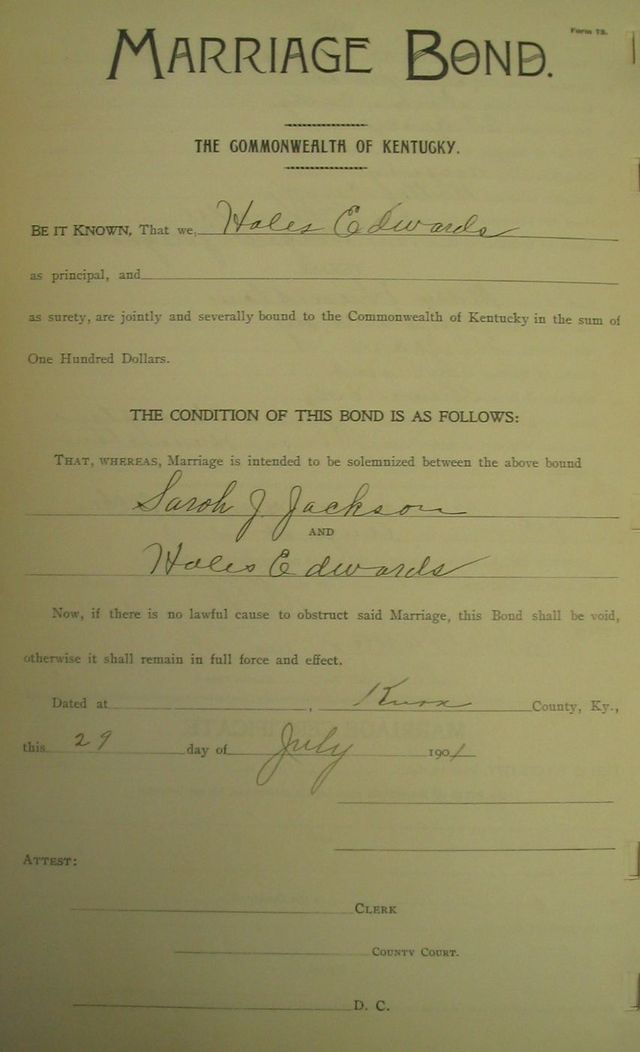 Form 13.
MARRIAGE BOND.
THE COMMONWEALTH OF KENTUCKY.
BE IT KNOWN, That we, Hales Edwards
as principal, and
as surety, are jointly and severally bound to the Commonwealth of Kentucky in the sum of
One Hundred Dollars.
THE CONDITION OF THIS BOND IS AS FOLLOWS:
THAT, WHEREAS, Marriage is intended to be solemnized between the above bound
Sarah J. Jackson
AND
Hales Edwards
Now, if there is no lawful cause to obstruct said Marriage, this Bond shall be void,
otherwise it shall remain in full force and effect.
Dated at , Knox County, Ky.,
this 29 day of July 1901
ATTEST:
CLERK
COUNTY COURT.
D. C.